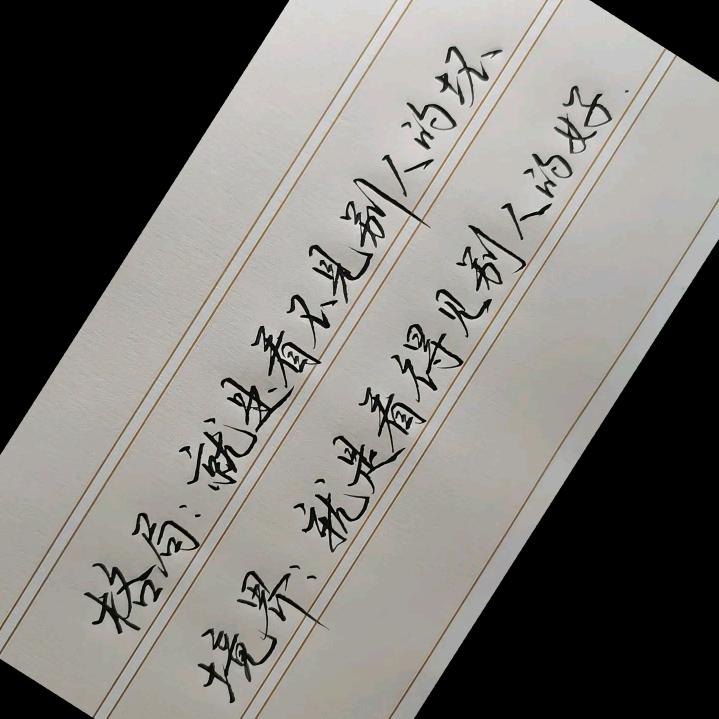 格局:就是看不见别人的坏
境界:就是看得见别人的好.